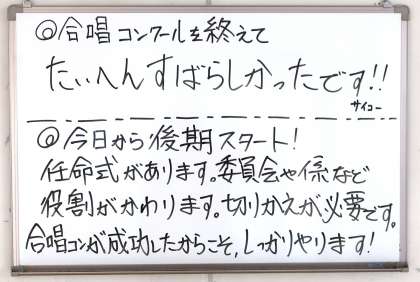 ◎合唱コンクールを終えて
たいへんすばらしかったです!!
サイコー
◎今日から後期スタート!
任命式があります。委員会や係など
役割がかわります。切りかえが必要です。
合唱コンが成功したからこそ、しっかりやります!